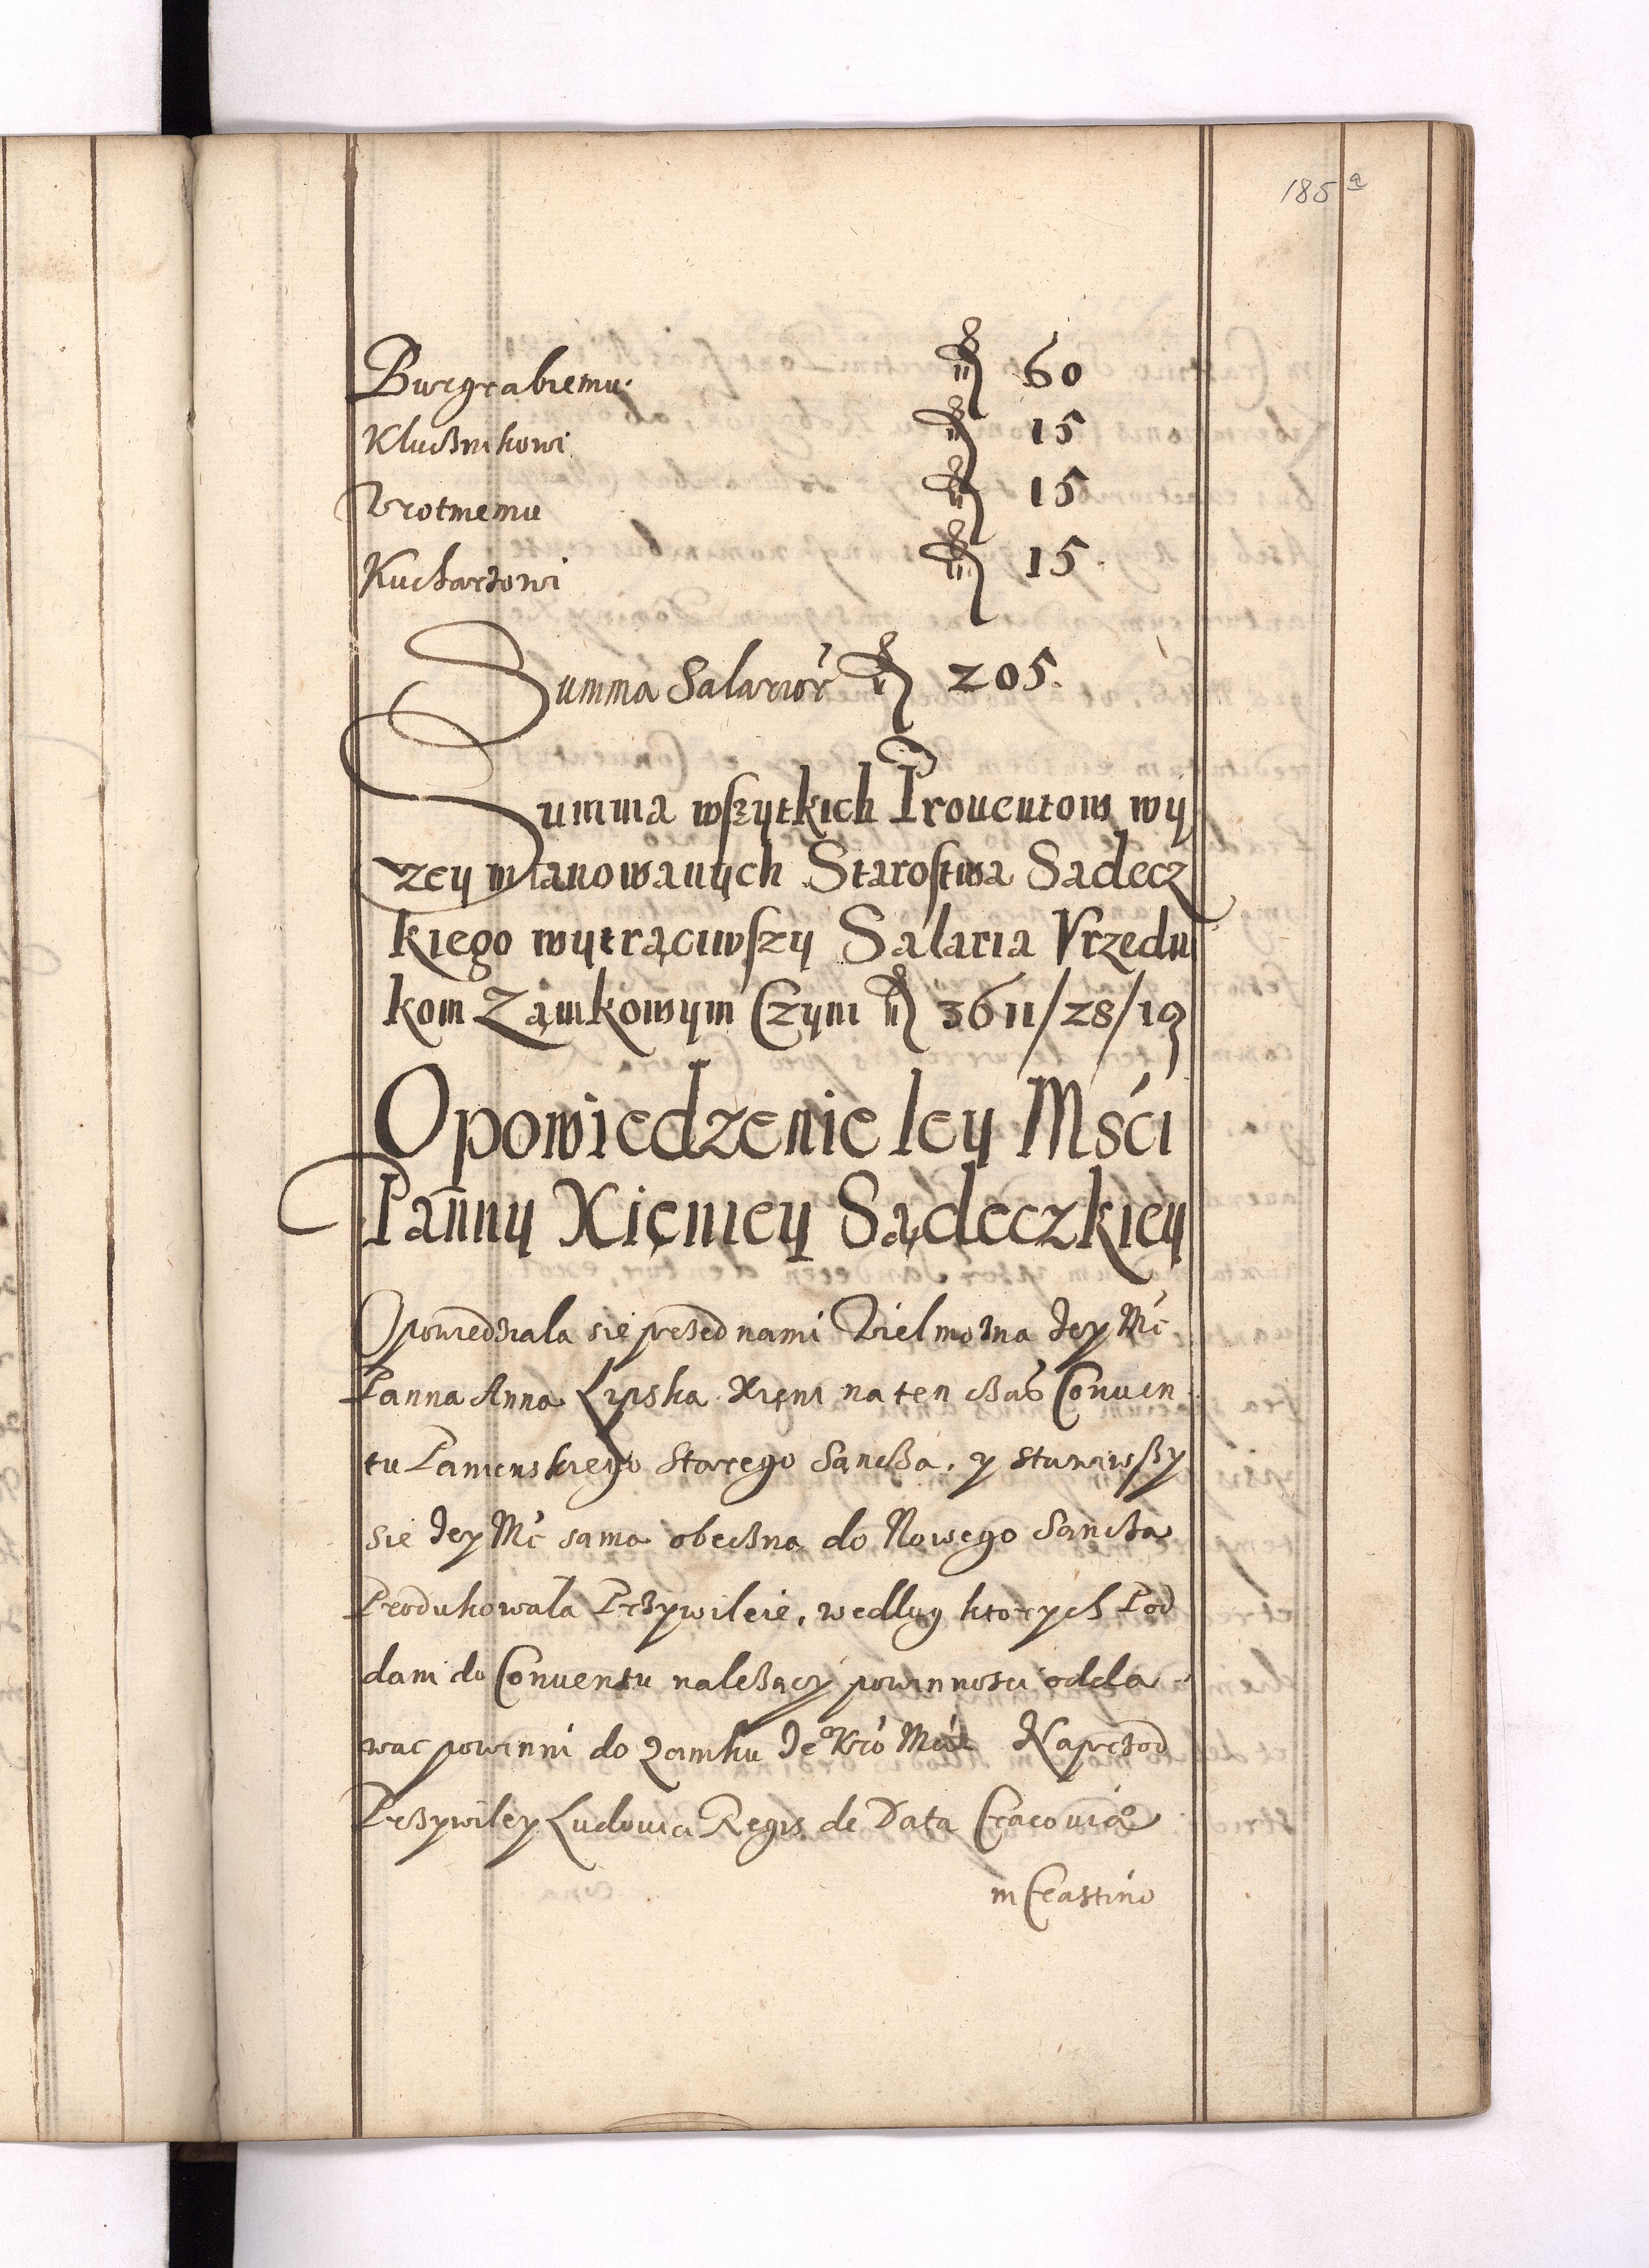 185 a
Burgrabiemu. fl 60
Klucznikowi fl 15
Wrotnemu fl 15
Kucharzowi fl 15.
Summa Salarior fl 205.
Summa wszytkich Prouentow wy
zey mianowanych Starostwa Sadecz
kiego wytrąciwszy Salaria Vrzedni
kom Zamkowym Czyni fl 3611/28/19
Opowiedzenie Iey Mści
Panny Xięniey Sądeczkiey
Opowiedziala się przed nami Wielmozna Jey Mć
Panna Anna Lipska Xięni na ten czas Conuen
tu Panienskiego Starego Sancza, y stawiwszy
sie Jey Mć sama obeczna do Nowego Sancza
Produkowala Przywileie, wedlug ktorych Pod
dani do Conuentu należący powinnosci odda
wac powinni do zamku Je° Kró Mci Naprzod
Przywiley Ludouici Regis de Data Cracouiae
in Crastino